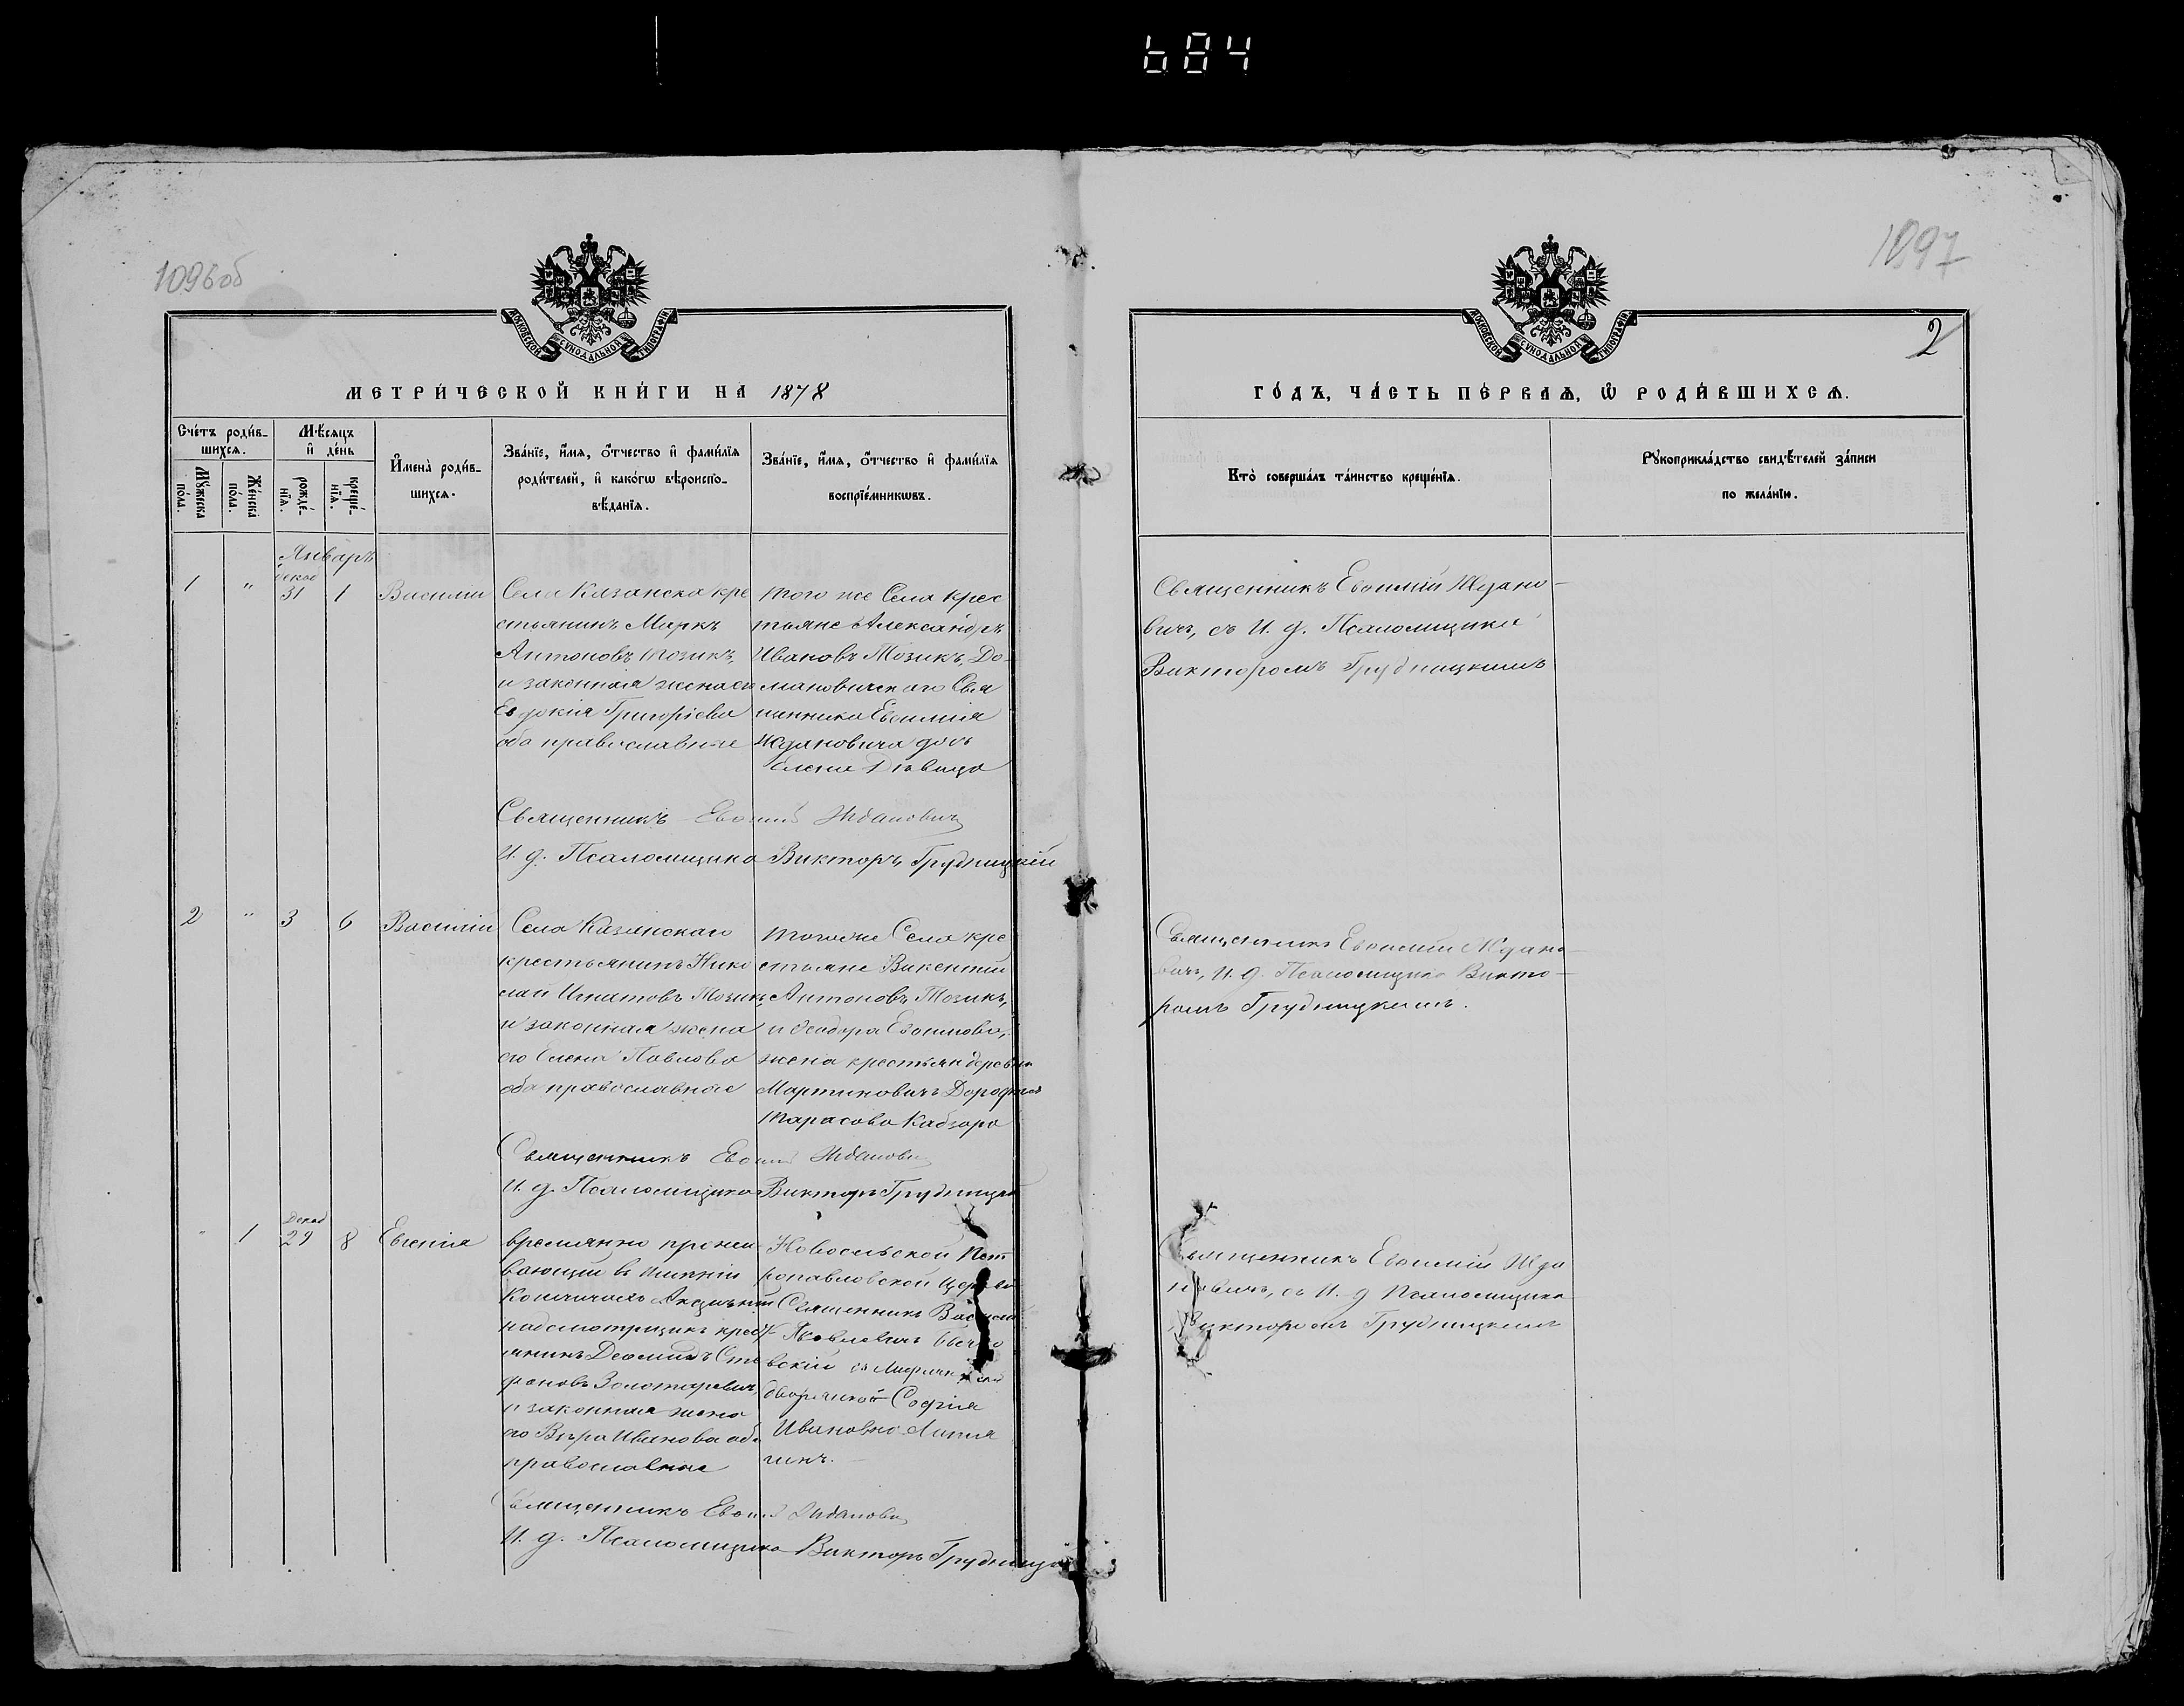 684
1096об
1097
2
МОСКОВСКОЙ СУНОДАЛЬНОЙ ТИПОГРАФІИ
МОСКОВСКОЙ СУНОДАЛЬНОЙ ТИПОГРАФІИ
МЕТРИ́ЧЕСКОЙ КНИ́ГИ НА 1878
ГО́ДЪ, ЧА́СТЬ ПЕ́РВАѦ, Ѡ҆ РОДИ́ВШИХСѦ.
Сче́тъ роди́в-
шихсѧ.
Мꙋ́жеска
по́ла.
Же́нска
по́ла.
Мѣ́сѧцъ
и҆ де́нь
рожде́-
нїѧ.
креще́-
нїѧ.
И҆мена̀ роди́в-
шихсѧ.
Зва́нїе, и҆́мѧ, ѻ҆́тчество и҆ фами́лїѧ
роди́телей, и҆ како́гѡ вѣроиспо-
вѣ́данїѧ.
Зва́нїе, и҆́мѧ, ѻ҆́тчество и҆ фами́лїѧ
воспрїе́мникѡвъ.
Кто̀ соверша́лъ та́инство креще́нїѧ.
Рꙋкоприкла́дство свидѣ́телей за́писи
по жела́нїю.
Январь
декаб
1 " 31 1 Василій
Села Казанска кре
стьянинъ Маркъ
Антоновъ Мозикъ,
и законная жена его
Евдокія Григоріева
оба православные
того же Села крес
тьяне Александръ
Ивановъ Мозикъ, До-
мановическаго Свя
щенника Евоимія
Ждановича дочь
Елена Дѣвица
Священникъ Евоимій Ждано-
вичъ, съ И. д. Псаломщика
Викторомъ Грудницкимъ
Священникъ Евоимій Ждановичъ
И. д. Псаломщика Викторъ Грудницкій
2 " 3 6 Василій
Села Казанскаго
крестьянинъ Нико
лай Игнатовъ Мозикъ
и законная жена
его Елена Павлова
оба православные
тогоже Села кре
стьяне Викентій
Антоновъ Мозикъ,
и Ѳеодора Евоимова,
жена крестьян деревни
Мартиновичъ Дорофея
Тарасова Кабзаро
Священникъ Евоимій Ждано-
вичъ, И. д. Псаломщика Викто-
ромъ Грудницкимъ.
Священникъ Евоимій Жданович
И. д. Псаломщика Викторъ Грудницкій
Декаб
" 1 29 8 Евгенія
временно прожи-
вающій въ имѣніи
Копчичахъ Акцизный
надсмотрщикъ крес
янинъ
фановъ Золотаревич,
и законная жена
его Вѣра Иванова оба
православные
Новосельской Пет
ропавловской Церкви
Священникъ Василій
Яковлевичъ
вскій съ
дворянкой Софія
Ивановна
чикъ.
Священникъ Евоимій Жда
новичъ, съ И. д Псаломщика
Викторомъ Грудницкимъ
Священникъ Евоимій Жданович
И. д. Псаломщика Викторъ Грудницкій